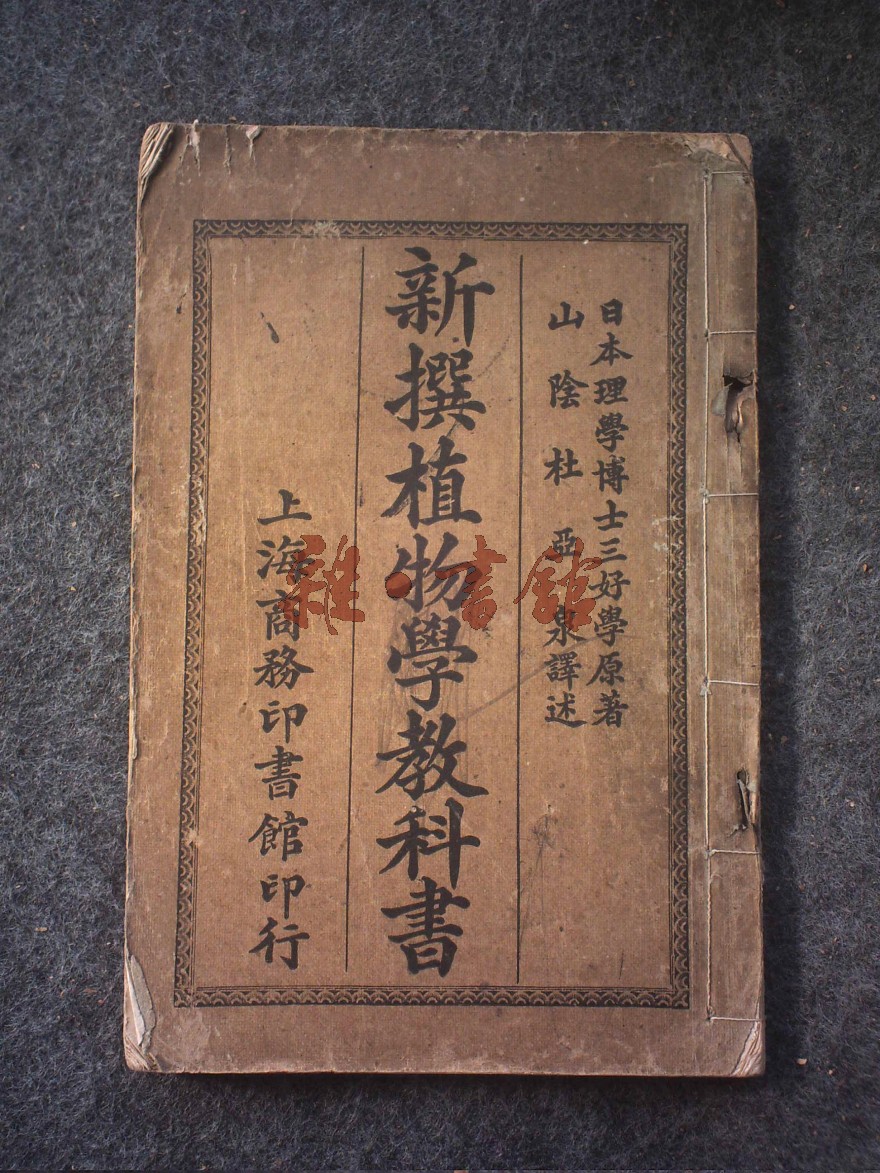 日本理學博士三好學原著
山陰杜亞泉譯述
新撰植物學教科書
上海商務印書館印行
雜·書館